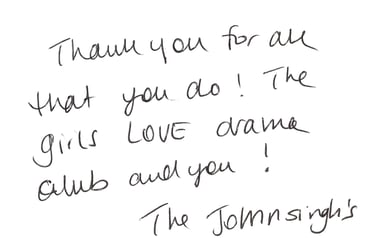 Thank you for all
that you do! The
girls LOVE drama
club and you!
The Johnsingh's